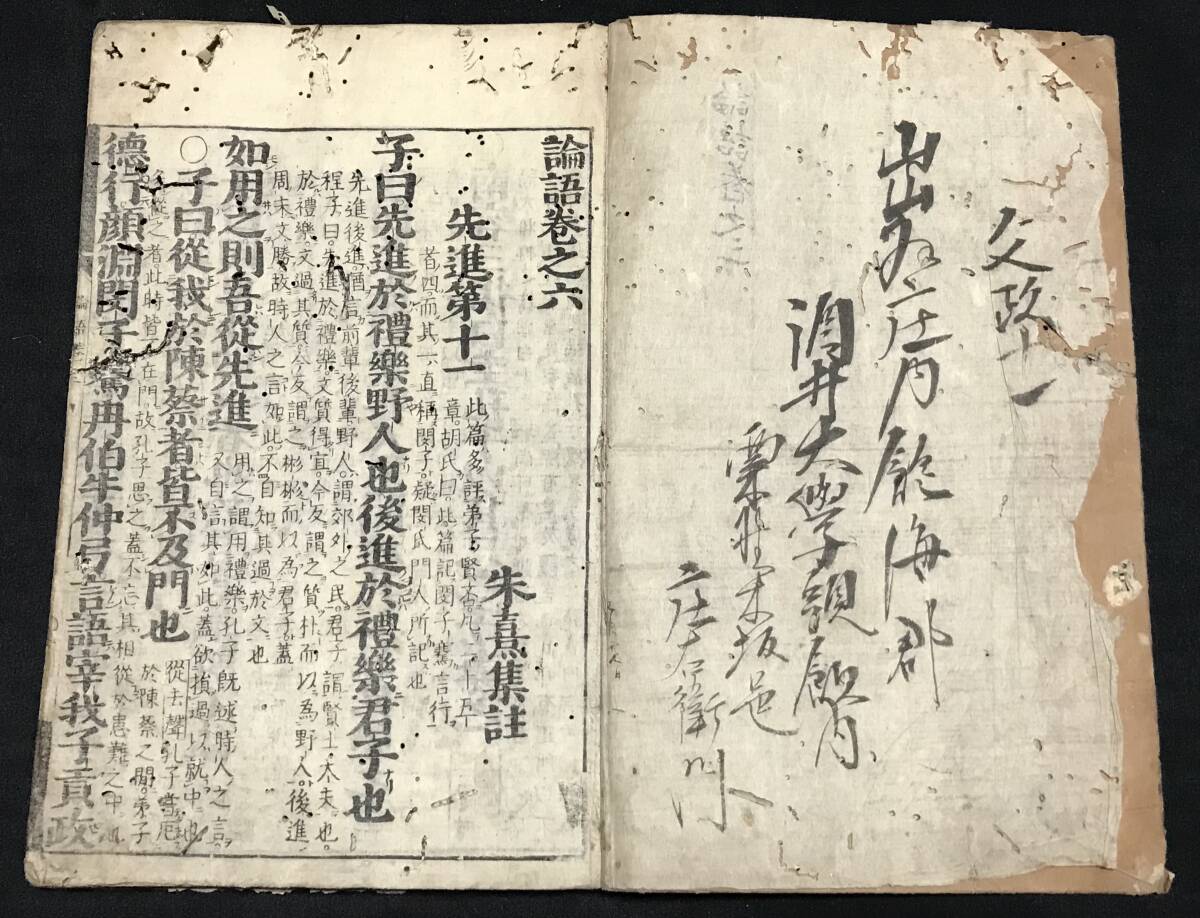 文政十一
出羽庄内飽海郡
酒井大學頭領内
庄右衛門
論語卷之六
朱熹集註
先進第十一
此篇多評弟子賢否凡二十五
章胡氏曰此篇記閔子騫言行
者四而其一直稱閔子疑閔氏門人所記也
子曰先進於禮樂野人也後進於禮樂君子也
先進後進猶言前輩後輩野人謂郊外之民君子謂賢士大夫也
程子曰先進於禮樂文質得宜今反謂之質朴而以為野人後進
於禮樂文過其質今反謂之彬彬而以為君子蓋
周末文勝故時人之言如此不自知其過於文也
如用之則吾從先進
用之謂用禮樂孔子既述時人之言
又自言其如此蓋欲損過以就中也
○子曰從我於陳蔡者皆不及門也
從去聲孔子嘗厄
於陳蔡之閒弟子
多從之者此時皆不在門故孔子思之蓋不忘其相從於患難之中也
德行顏淵閔子騫冉伯牛仲弓言語宰我子貢政